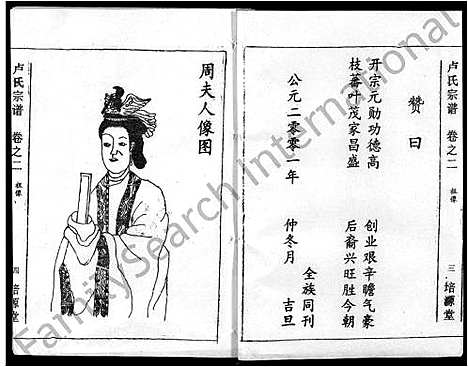 赞曰
开宗元勋功德高 创业艰辛瞻气豪
枝蕃叶茂家昌盛 后裔兴旺胜今朝
公元二零零一年 仲冬月
全族同刊
吉旦
卢氏宗谱 卷之二 祖像 三 培源堂
周夫人像图
卢氏宗谱 卷之二 祖像 四 培源堂
FamilySearch International